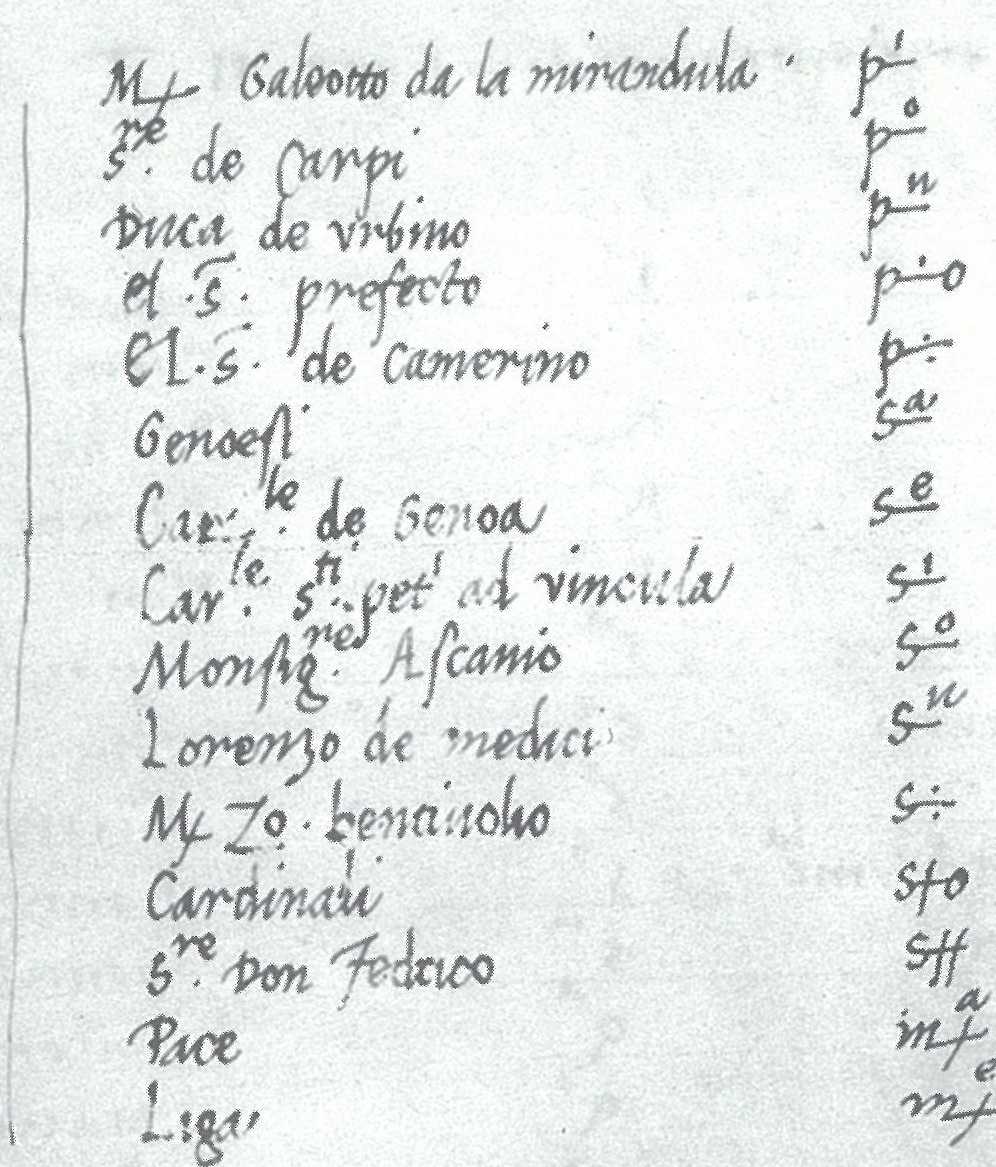 M Galeotto da la mirandula · p i
s.re de Carpi p o
Duca de vrbino p u
el .s̄. prefecto p·o
EL .s̄. de Camerino p÷
Genoesi s a
Car.le de Genoa s e
Car.le s.ti pet' ad vincula s i
Monsig.re Ascanio s o
Lorenzo de medici s u
M Zo. bentiuolio s÷
Cardinali s+o
s.re Don Fedrico sff
Pace m+ a
Liga m+ e